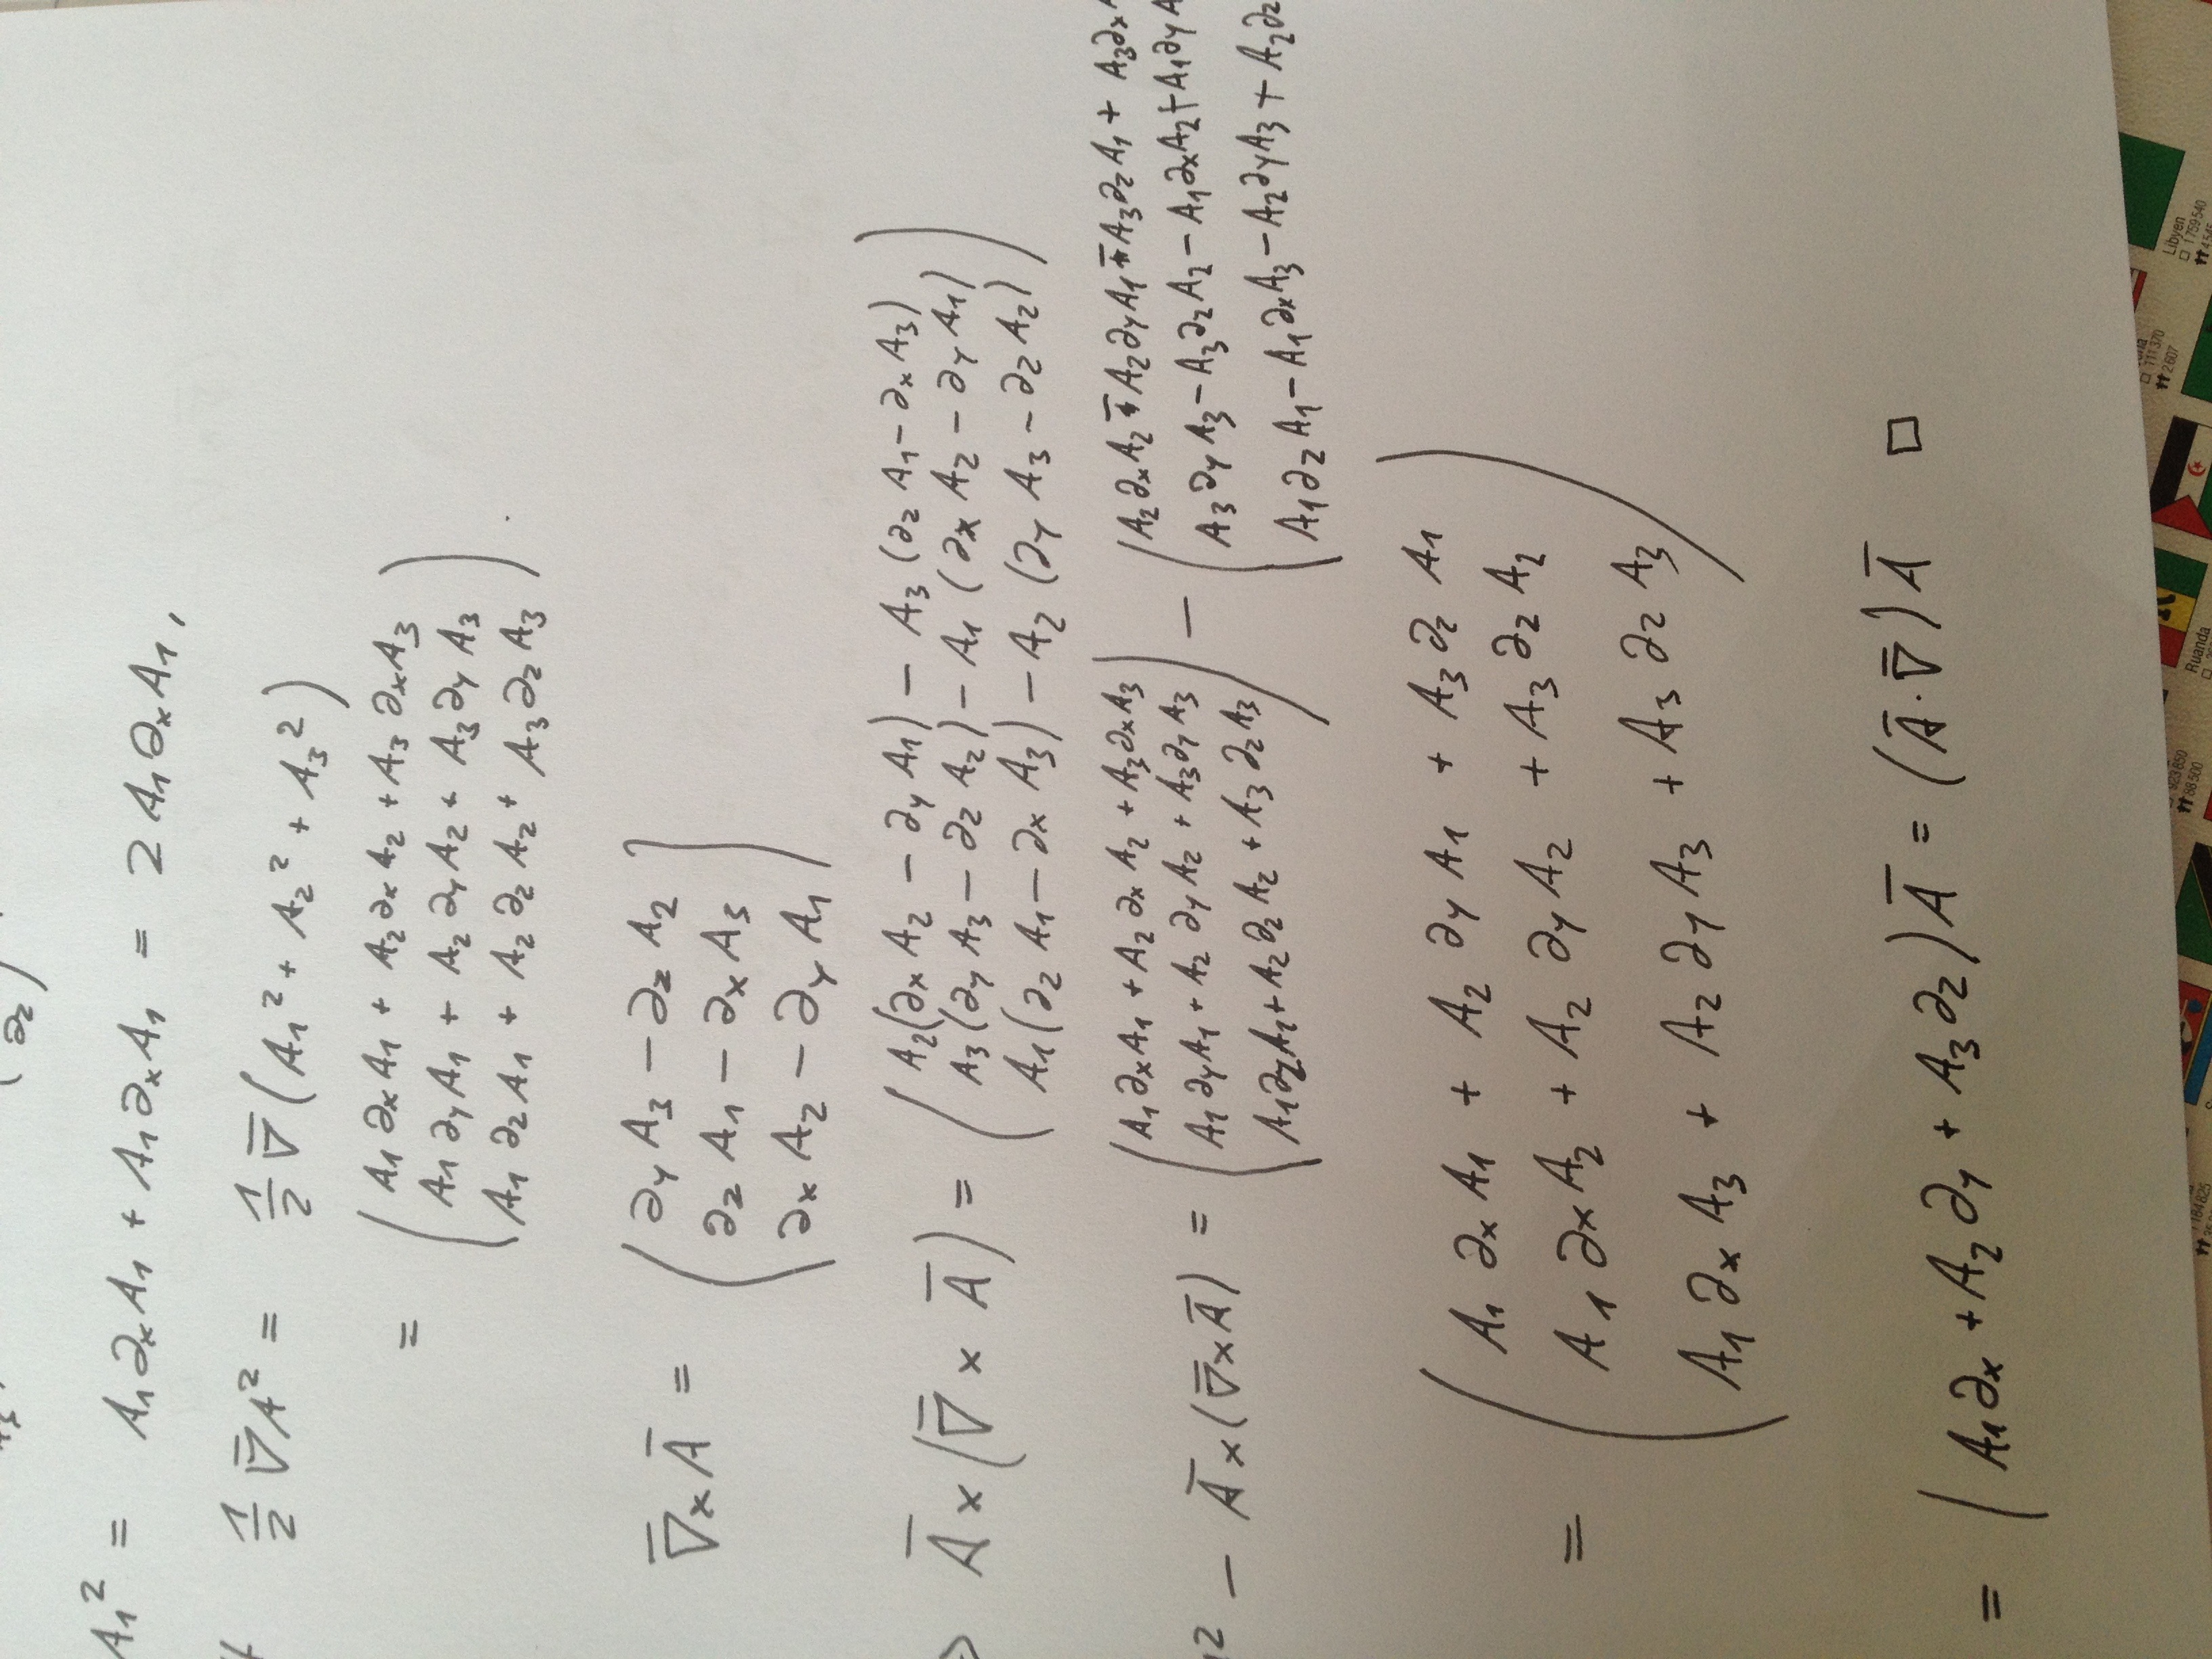 ∂z)
A₁² = A₁∂xA₁ + A₁∂xA₁ = 2A₁∂xA₁,
½ ∇̄A² = ½ ∇̄(A₁² + A₂² + A₃²)
= ( A₁∂xA₁ + A₂∂xA₂ + A₃∂xA₃
A₁∂yA₁ + A₂∂yA₂ + A₃∂yA₃
A₁∂zA₁ + A₂∂zA₂ + A₃∂zA₃ )
( ∂yA₃ − ∂zA₂
∇̄×Ā = ∂zA₁ − ∂xA₃
∂xA₂ − ∂yA₁ )
( A₂(∂xA₂ − ∂yA₁) − A₃(∂zA₁ − ∂xA₃)
Ā×(∇̄×Ā) = A₃(∂yA₃ − ∂zA₂) − A₁(∂xA₂ − ∂yA₁)
A₁(∂zA₁ − ∂xA₃) − A₂(∂yA₃ − ∂zA₂) )
( A₁∂xA₁ + A₂∂xA₂ + A₃∂xA₃ ) − ( A₂∂xA₂ − A₂∂yA₁ − A₃∂zA₁ + A₃∂xA
² − Ā×(∇̄×Ā) = A₁∂yA₁ + A₂∂yA₂ + A₃∂yA₃ A₃∂yA₃ − A₃∂zA₂ − A₁∂xA₂ + A₁∂yA
A₁∂zA₁ + A₂∂zA₂ + A₃∂zA₃ A₁∂zA₁ − A₁∂xA₃ − A₂∂yA₃ + A₂∂z
( A₁∂xA₁ + A₂∂yA₁ + A₃∂zA₁
= A₁∂xA₂ + A₂∂yA₂ + A₃∂zA₂
A₁∂xA₃ + A₂∂yA₃ + A₃∂zA₃ )
= (A₁∂x + A₂∂y + A₃∂z)Ā = (Ā·∇̄)Ā □
Libyen
□ 1759540
□ 111370
2607
Ruanda
88500